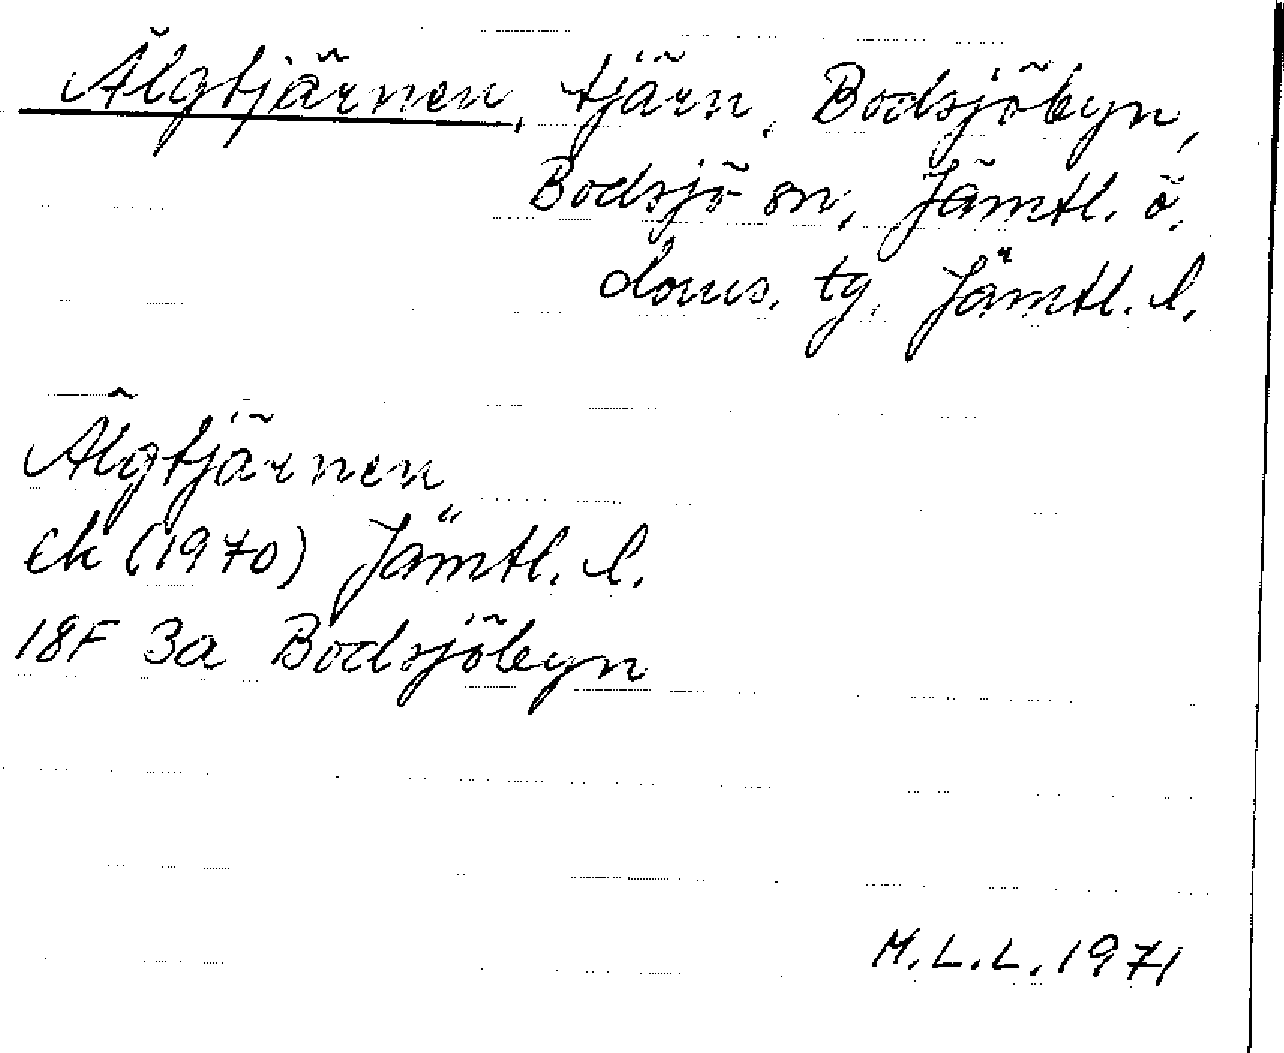 Älgtjärnen, tjärn, Bodsjöbyn,
Bodsjö sn, Jämtl. ö.
doms. tg, Jämtl. l.
Älgtjärnen
ek (1970) Jämtl. l.
18F 3a Bodsjöbyn
M.L.L. 1971